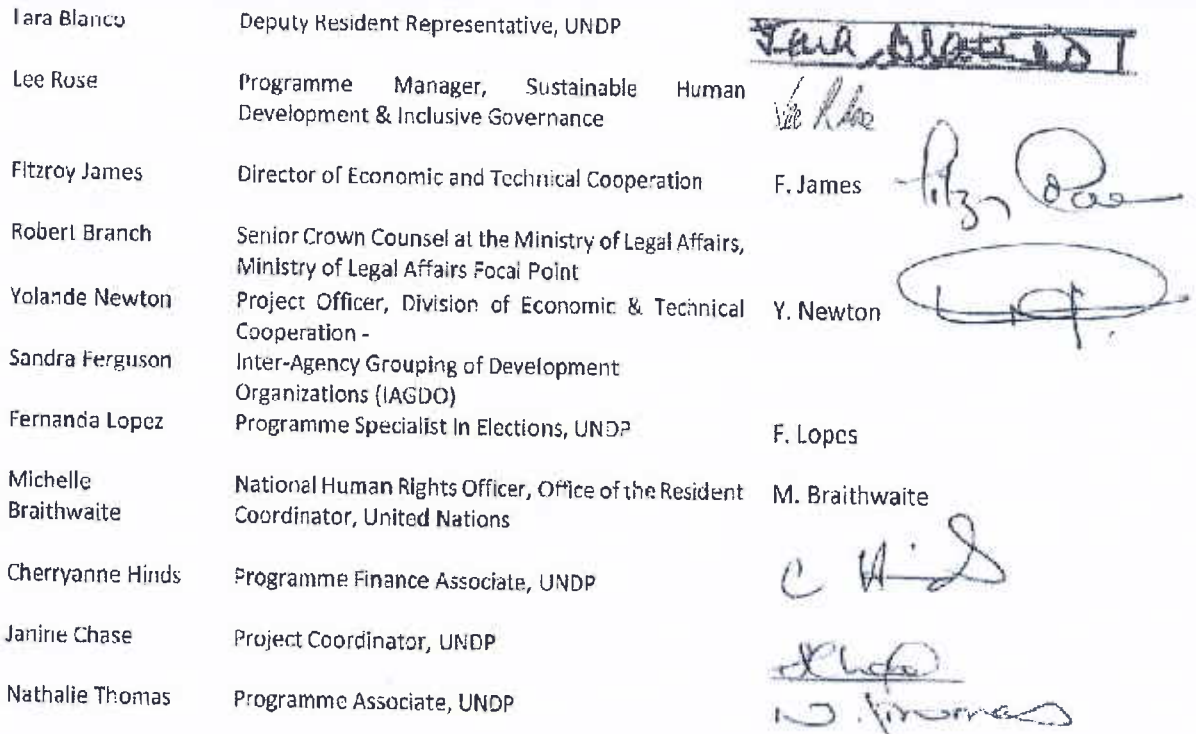 Tara Blanco Deputy Resident Representative, UNDP Tara Blanco
Lee Rose Programme Manager, Sustainable Human
Development & Inclusive Governance Lee Rose
Fitzroy James Director of Economic and Technical Cooperation F. James
Robert Branch Senior Crown Counsel at the Ministry of Legal Affairs,
Ministry of Legal Affairs Focal Point
Yolande Newton Project Officer, Division of Economic & Technical Y. Newton
Cooperation -
Sandra Ferguson Inter-Agency Grouping of Development
Organizations (IAGDO)
Fernanda Lopez Programme Specialist In Elections, UNDP F. Lopes
Michelle National Human Rights Officer, Office of the Resident M. Braithwaite
Braithwaite Coordinator, United Nations
Cherryanne Hinds Programme Finance Associate, UNDP C Hinds
Janine Chase Project Coordinator, UNDP
Nathalie Thomas Programme Associate, UNDP N. Thomas